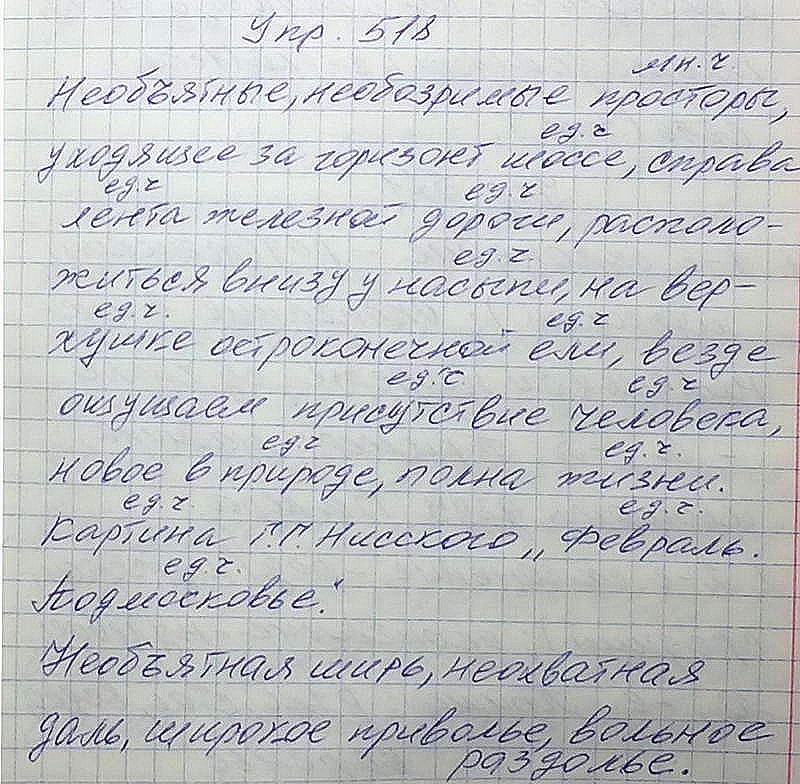 Упр. 518
мн.ч.
Необъятные, необозримые просторы,
ед.ч
уходящее за горизонт шоссе, справа
ед.ч ед.ч
лента железной дороги, располо-
ед.ч.
житься внизу у насыпи, на вер-
ед.ч. ед.ч
хушке остроконечной ели, везде
ед.ч. ед.ч
ощущаем присутствие человека,
ед.ч ед.ч.
новое в природе, полна жизни.
ед.ч. ед.ч.
Картина Г.Г. Нисского „Февраль.
ед.ч.
Подмосковье."
Необъятная ширь, неохватная
даль, широкое приволье, вольное
раздолье.